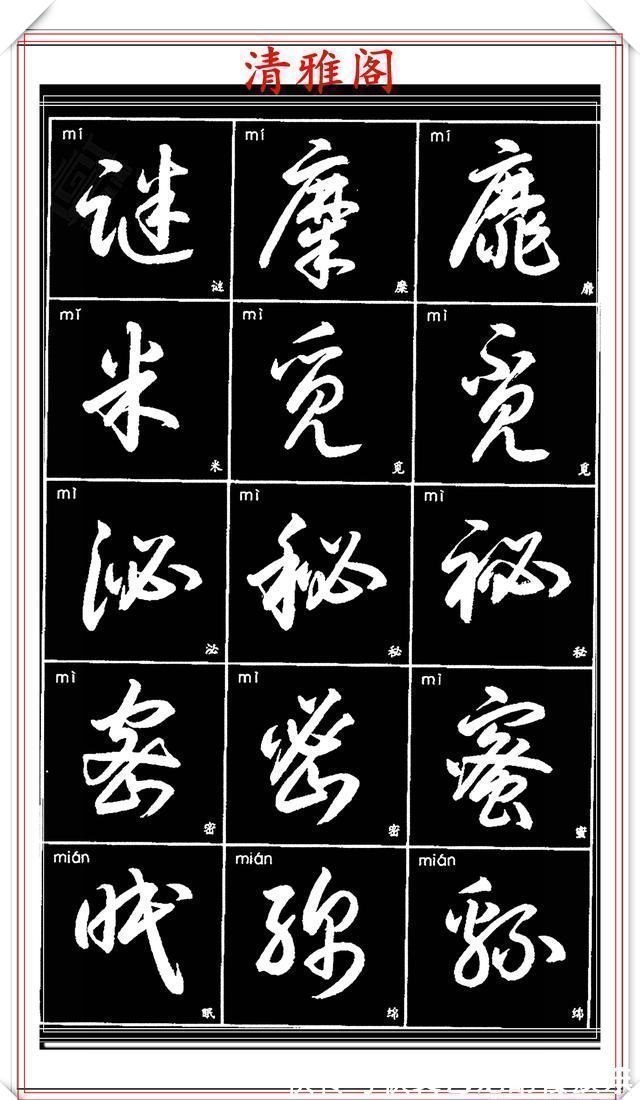 清雅阁
mí mí mí
谜 糜 靡
谜 糜 靡
mǐ mì mì
米 觅 觅
米 觅 觅
mì mì mì
泌 秘 秘
泌 秘 秘
mì mì mì
密 密 蜜
密 密 蜜
mián mián mián
眠 绵 绵
眠 绵 绵